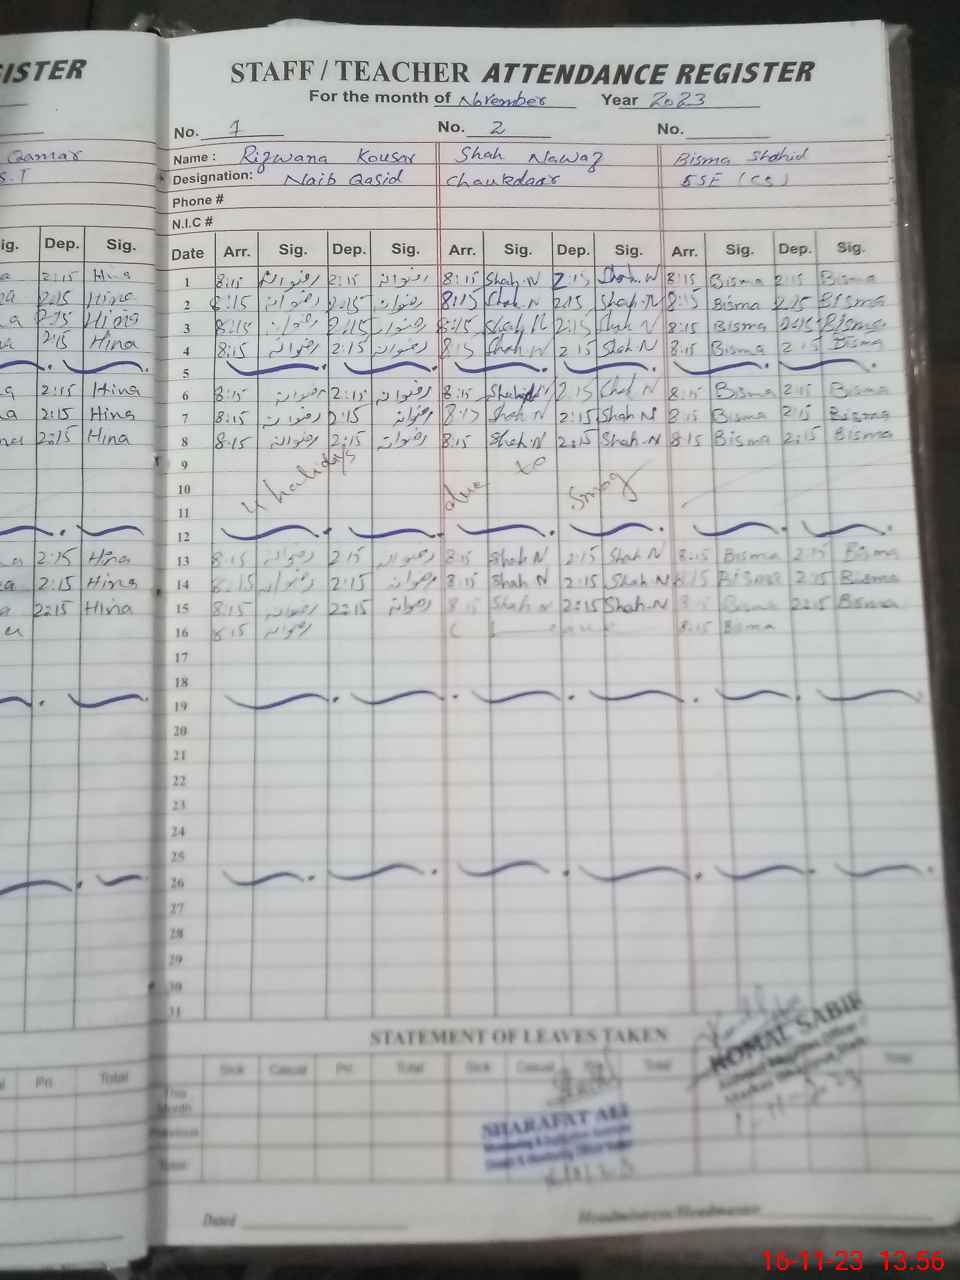 ISTER
Qamar
S.T
STAFF / TEACHER ATTENDANCE REGISTER
For the month of November Year 2023
No. 1 No. 2 No.
Name : Rizwana Kousar Shah Nawaz Bisma Shahid
Designation: Naib Qasid Chaukdaar ESE (CS)
Phone #
N.I.C #
ig. Dep. Sig. Date Arr. Sig. Dep. Sig. Arr. Sig. Dep. Sig. Arr. Sig. Dep. Sig.
2:15 Hina 1 8:15 رضوانہ 2:15 رضوانہ 8:15 Shah.N 2:15 Shah.N 8:15 Bisma 2:15 Bisma
2:15 Hina 2 8:15 رضوانہ 2:15 رضوانہ 8:15 Shah.N 2:15 Shah.N 8:15 Bisma 2:15 Bisma
2:15 Hina 3 8:15 رضوانہ 2:15 رضوانہ 8:15 Shah N 2:15 Shah N 8:15 Bisma 2:15 Bisma
2:15 Hina 4 8:15 رضوانہ 2:15 رضوانہ 8:15 Shah.N 2:15 Shah.N 8:15 Bisma 2:15 Bisma
5
2:15 Hina 6 8:15 رضوانہ 2:15 رضوانہ 8:15 2:15 Shah N 8:15 Bisma 2:15 Bisma
2:15 Hina 7 8:15 رضوانہ 2:15 رضوانہ 8:15 Shah N 2:15 Shah N 8:15 Bisma 2:15 Bisma
2:15 Hina 8 8:15 رضوانہ 2:15 رضوانہ 8:15 Shah.N 2:15 Shah.N 8:15 Bisma 2:15 Bisma
9
4 holidays due to Smog
10
11
12
2:15 Hina 13 8:15 رضوانہ 2:15 رضوانہ 8:15 Shah N 2:15 Shah N 8:15 Bisma 2:15 Bisma
2:15 Hina 14 8:15 رضوانہ 2:15 رضوانہ 8:15 Shah N 2:15 Shah N 8:15 Bisma 2:15 Bisma
2:15 Hina 15 8:15 رضوانہ 2:15 رضوانہ 8:15 Shah N 2:15 Shah.N 8:15 Bisma 2:15 Bisma
16 8:15 رضوانہ 8:15 Bisma
17
18
19
20
21
22
23
24
25
26
27
28
29
30
31
STATEMENT OF LEAVES TAKEN
Pri Total Sick Casual Pri Total Sick Casual Total Total
This Month
Previous
Total
KOMAL SABIR
SHARAFAT ALI
Dated Headmistress/Headmaster
16-11-23 13:56